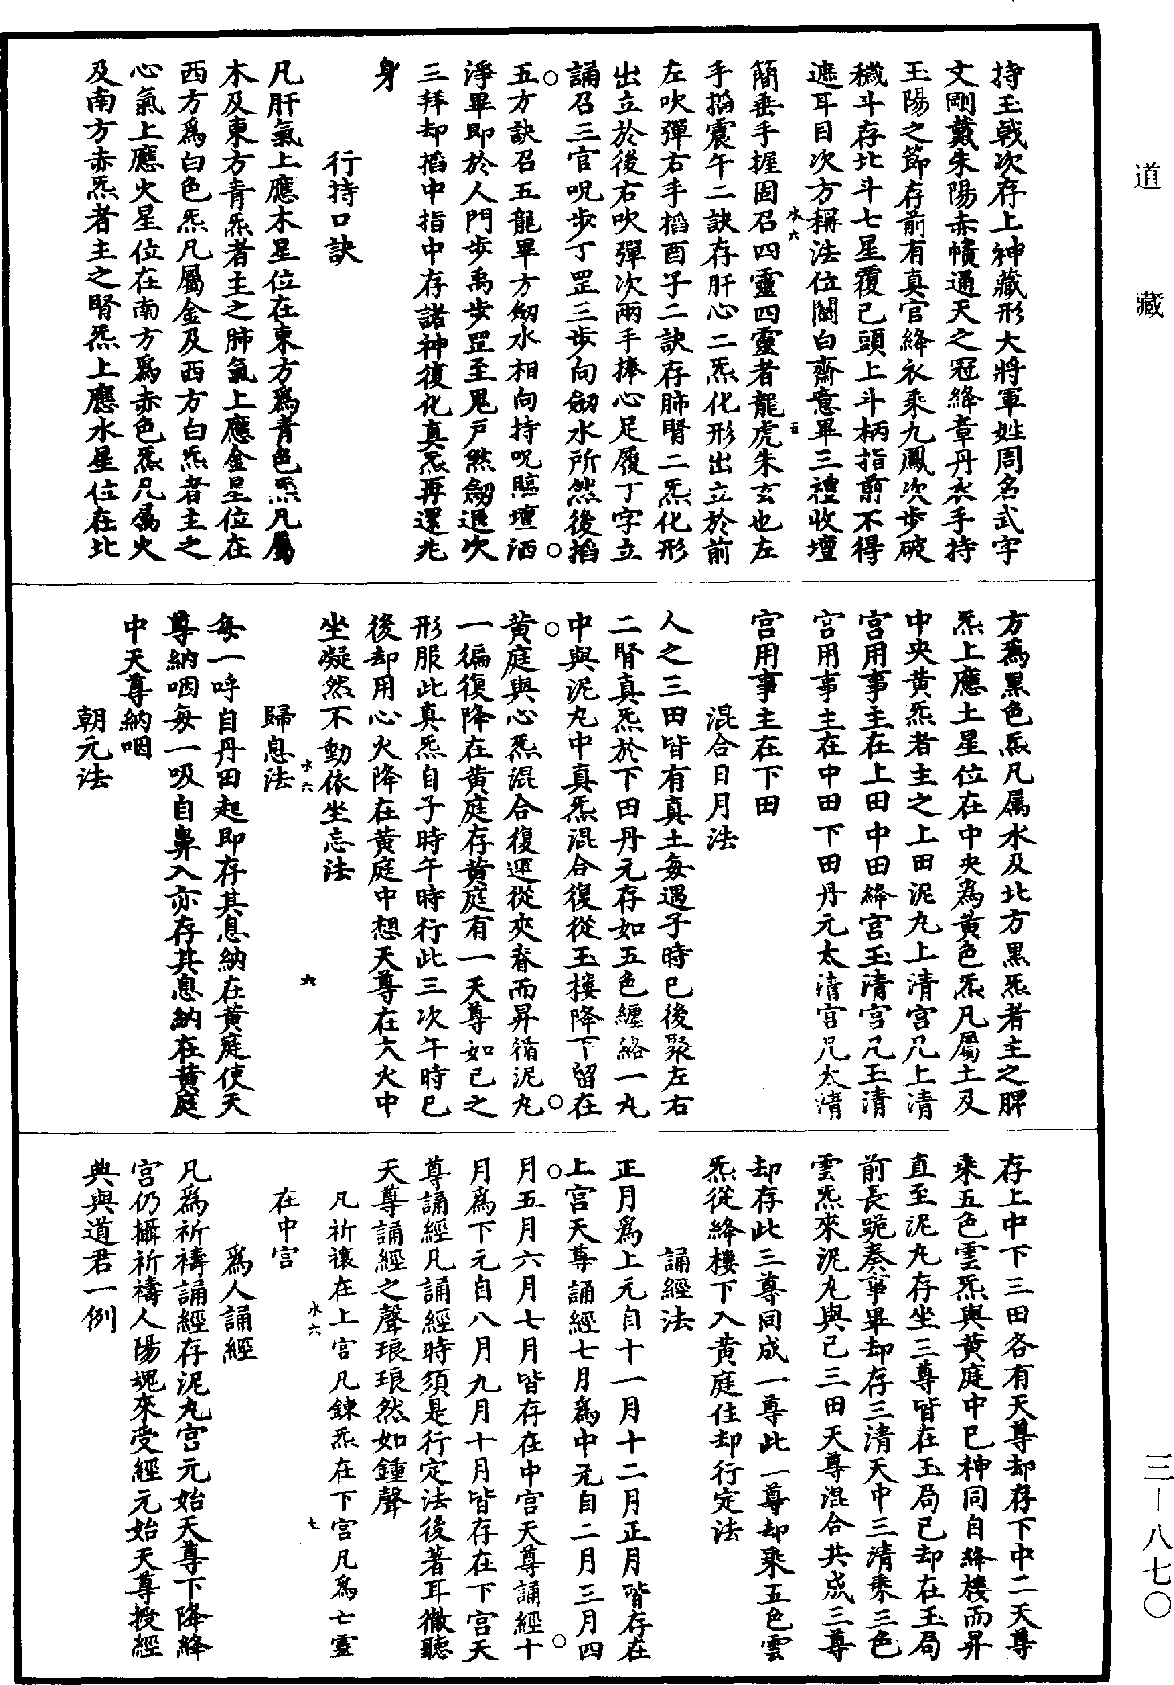 道藏
三—八七〇
持玉戟次存上神藏形大將軍姓周名武字
文剛戴朱陽赤幘通天之冠絳章丹衣手持
玉陽之節存前有真官絳衣乘九鳳次步破
穢斗存北斗七星覆己頭上斗柄指前不得
遮耳目次方稱法位關白齋意畢三禮收壇
水六
五
簡垂手握固召四靈四靈者龍虎朱玄也左
手掐震午二訣存肝心二炁化形出立於前
左吹彈右手掐酉子二訣存肺腎二炁化形
出立於後右吹彈次兩手捧心足履丁字立
誦召三官呪步丁罡三步向劒水所然後掐
五方訣召五龍畢方劒水相向持呪臨壇洒
淨畢即於人門步禹步罡至鬼戶煞劒退次
三拜却掐中指中存諸神復化真炁再還兆
身
行持口訣
凡肝氣上應木星位在東方為青色炁凡屬
木及東方青炁者主之肺氣上應金星位在
西方為白色炁凡屬金及西方白炁者主之
心氣上應火星位在南方為赤色炁凡屬火
及南方赤炁者主之腎炁上應水星位在北
方為黑色炁凡屬水及北方黑炁者主之脾
炁上應土星位在中央為黃色炁凡屬土及
中央黃炁者主之上田泥丸上清宮凡上清
宮用事主在上田中田絳宮玉清宮凡玉清
宮用事主在中田下田丹元太清宮凡太清
宮用事主在下田
混合日月法
人之三田皆有真土每遇子時巳後聚左右
二腎真炁於下田丹元存如五色纏絡一丸
中與泥丸中真炁混合復從玉樓降下留在
黃庭與心炁混合復運從夾脊而昇循泥丸
一徧復降在黃庭存黃庭有一天尊如己之
形服此真炁自子時午時行此三次午時巳
後却用心火降在黃庭中想天尊在大火中
坐凝然不動依坐忘法
水六
六
歸息法
每一呼自丹田起即存其息納在黃庭使天
尊納咽每一吸自鼻入亦存其息納在黃庭
中天尊納咽
朝元法
存上中下三田各有天尊却存下中二天尊
乘五色雲炁與黃庭中己神同自絳樓而昇
直至泥丸存坐三尊皆在玉局己却在玉局
前長跪奏事畢却存三清天中三清乘三色
雲炁來泥丸與己三田天尊混合共成三尊
却存此三尊同成一尊此一尊却乘五色雲
炁從絳樓下入黃庭住却行定法
誦經法
正月為上元自十一月十二月正月皆存在
上宮天尊誦經七月為中元自二月三月四
月五月六月七月皆存在中宮天尊誦經十
月為下元自八月九月十月皆存在下宮天
尊誦經凡誦經時須是行定法後著耳徹聽
天尊誦經之聲琅琅然如鍾聲
凡祈禳在上宮凡鍊炁在下宮凡為亡靈
水六
七
在中宮
為人誦經
凡為祈禱誦經存泥丸宮元始天尊下降絳
宮仍攝祈禱人陽魂來受經元始天尊授經
典與道君一例